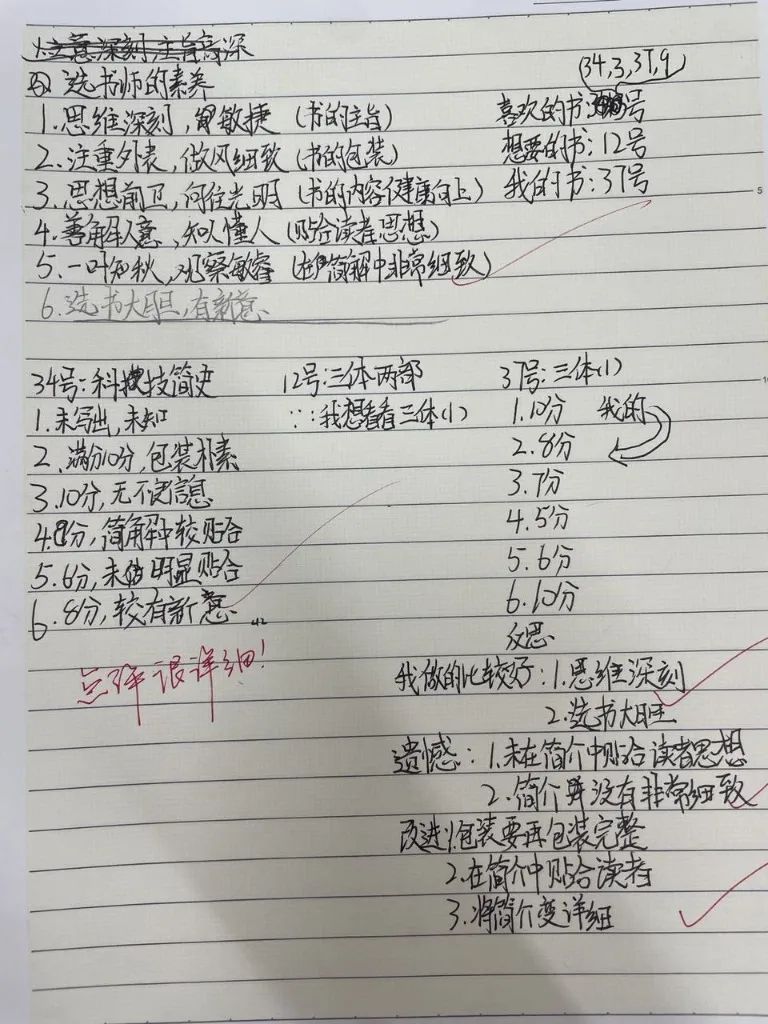 选书师的素养
1.思维深刻,敏捷(书的主旨)
2.注重外表,做风细致(书的包装)
3.思想前卫,向往光明(书的内容健康向上)
4.善解人意,知人懂人(贴合读者思想)
5.一叶知秋,观察敏睿(在简解中非常细致)
6.选书大胆,有新意
(34,3,37,9)
喜欢的书:号
想要的书:12号
我的书:37号
34号:科技简史
1.未写出,未知
2.满分10分,包装朴素
3.10分,无不良信息
4.8分,简解中较贴合
5.6分,未明显贴合
6.8分,较有新意
12号:三体两部
∵:我想看看三体(1)
37号:三体(1)
1.10分 我的
2.8分
3.7分
4.5分
5.6分
6.10分
点评很详细!
反思
我做的比较好:1.思维深刻
2.选书大胆
遗憾:1.未在简介中贴合读者思想
2.简介并没有非常细致
改进:1.包装要再包装完整
2.在简介中贴合读者
3.将简介变详细